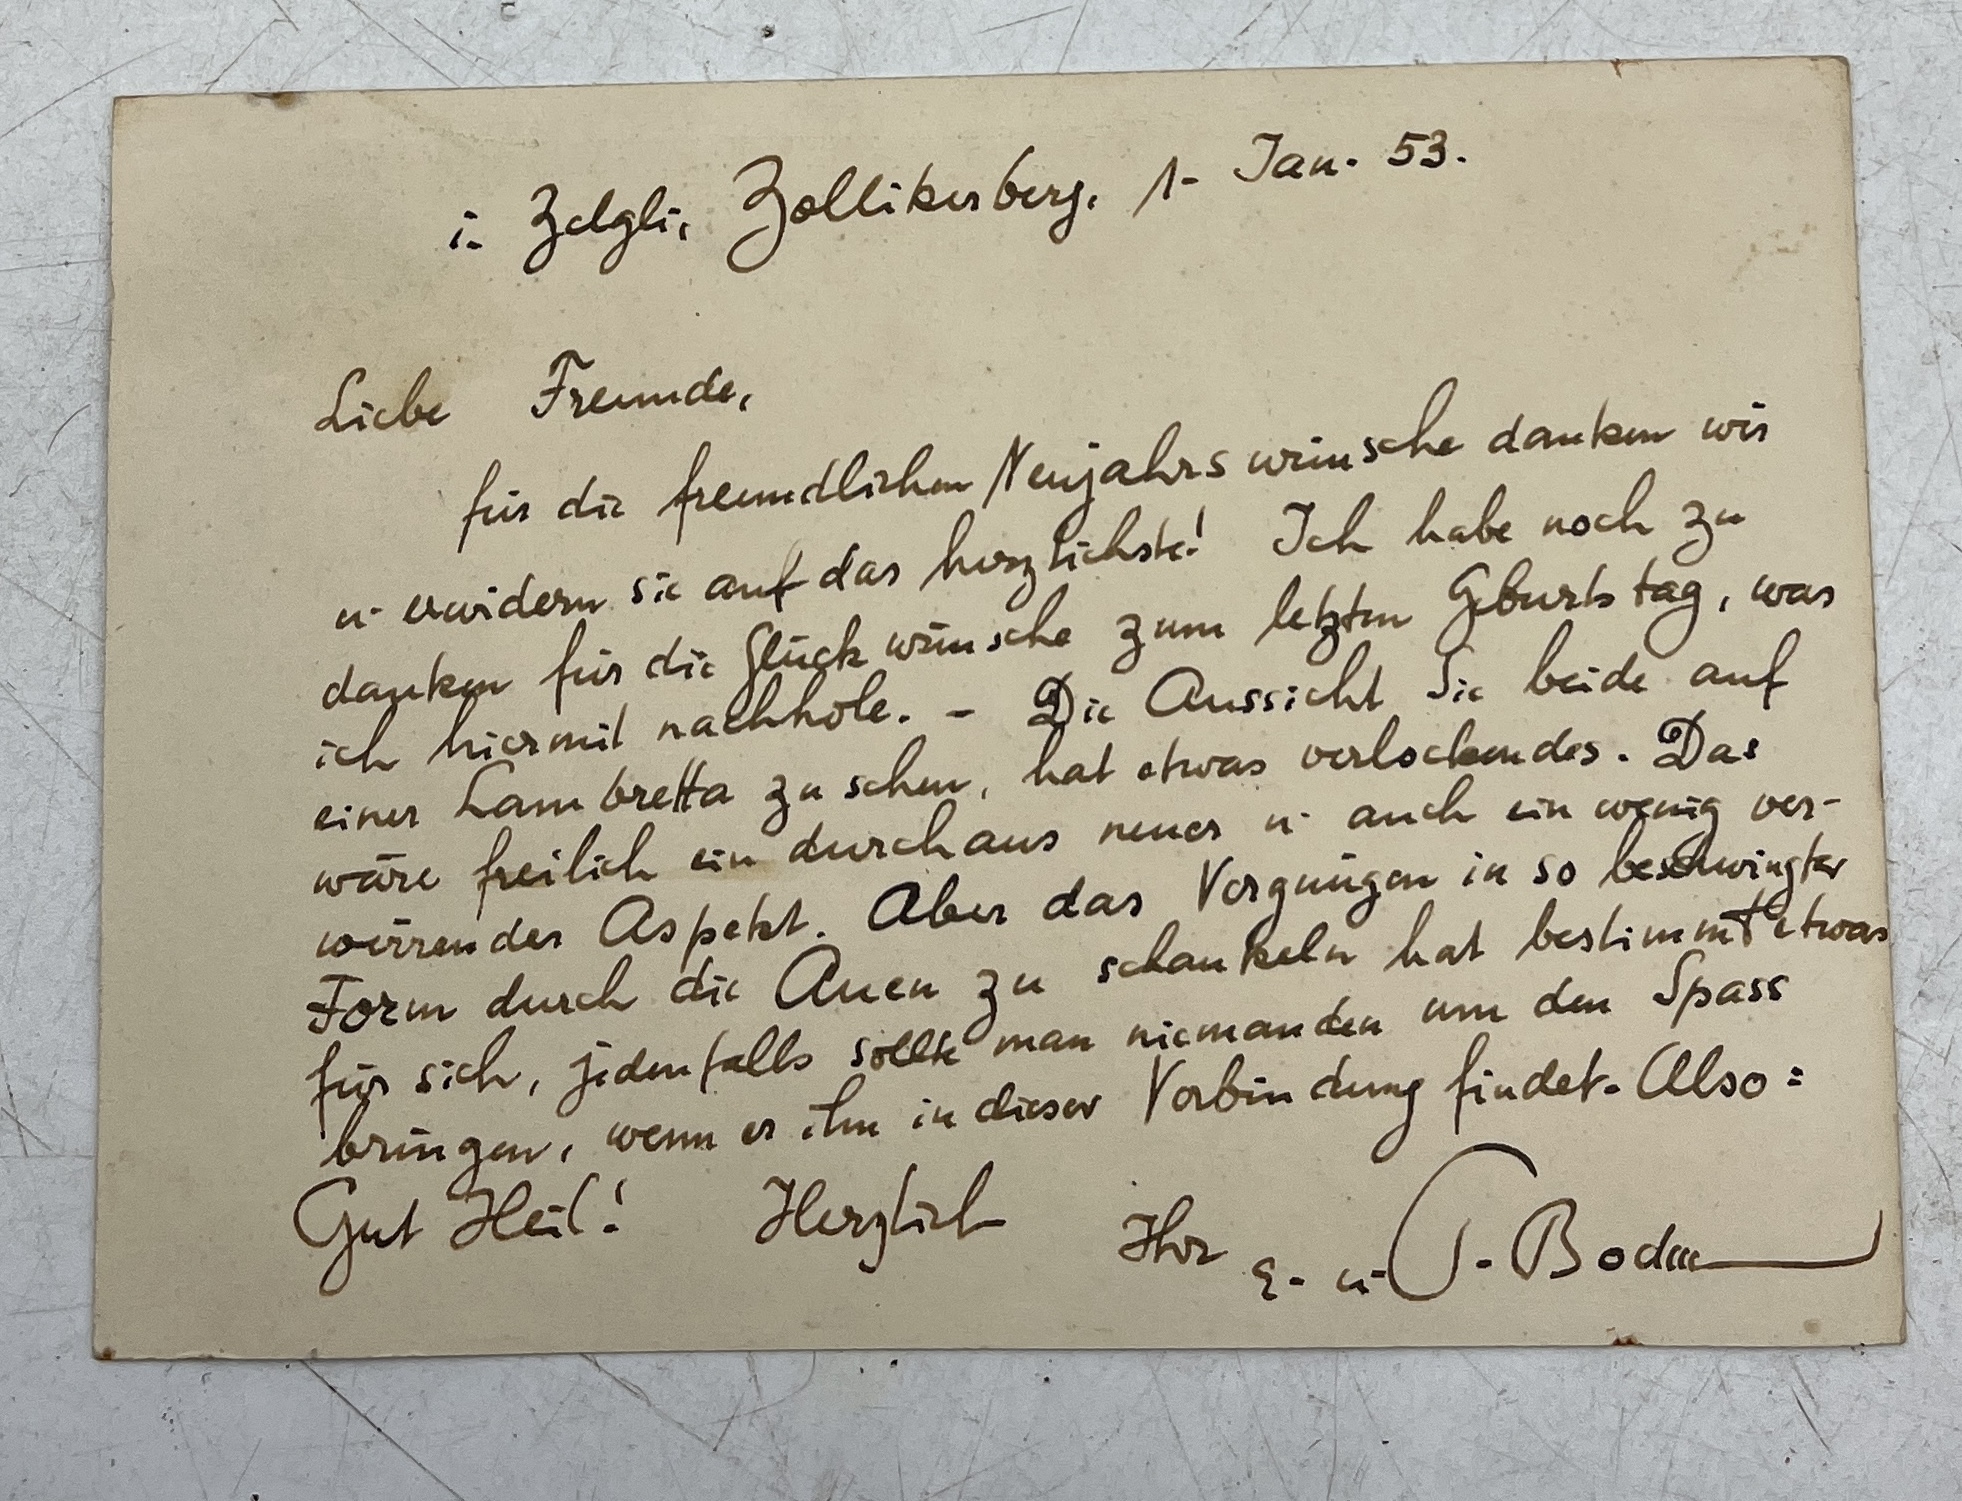 i. Zelgli, Zollikerberg, 1. Jan. 53.
Liebe Freunde,
für die freundlichen Neujahrswünsche danken wir
u. erwidern sie auf das herzlichste! Ich habe noch zu
danken für die Glückwünsche zum letzten Geburtstag, was
ich hiermit nachhole. – Die Aussicht Sie beide auf
einer Lambretta zu sehen, hat etwas verlockendes. Das
wäre freilich ein durchaus neuer u. auch ein wenig ver-
wirrender Aspekt. Aber das Vergnügen in so beschwingter
Form durch die Auen zu schaukeln hat bestimmt etwas
für sich, jedenfalls sollte man niemanden um den Spass
bringen, wenn er ihn in dieser Verbindung findet. Also:
Gut Heil! Herzlich Ihr E. u. P. Bodmer